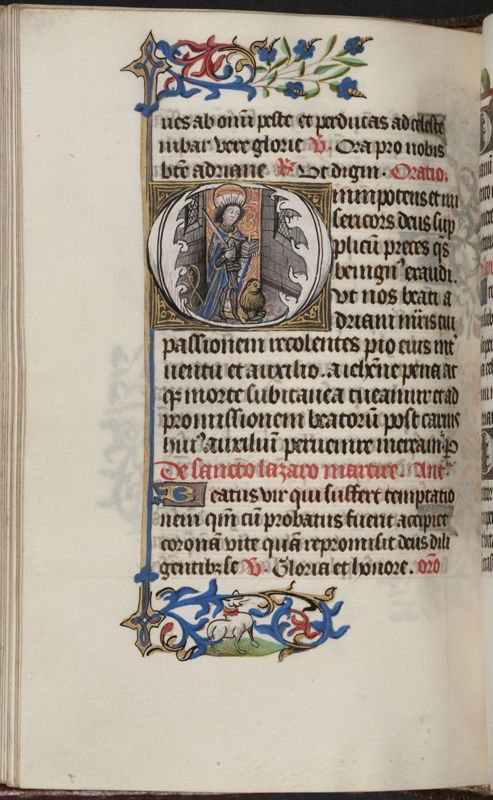 ues ab omni peste et perducas ad celeste
iubar vere glorie V. Ora pro nobis
bte adriane R. Vt digni. Oratio.
Omnipotens et mi
sericors deus sup
plicū preces qs
benignꝰ exaudi.
Vt nos beati a
driani mris tui
passionem recolentes pio eius int
uentu et auxilio. a iehēne pena at
qꝫ morte subitanea tueamur et ad
promissionem beatorū post carnis
huiꝰ auxiliū peruenire
De sancto lazaro martire. Ant
Beatus vir qui suffert temptatio
nem qm cū probatus fuerit accipiet
coronā vite quā repromisit deus dili
gentibꝫ se V. Gloria et honore. oro